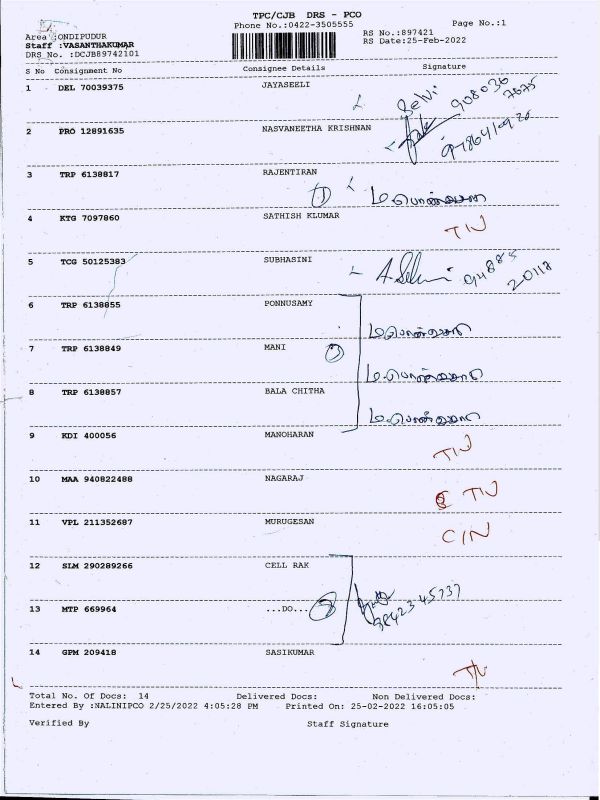 TPC/CJB DRS - PCO
Phone No.:0422-3505555 Page No.:1
Area :ONDIPUDUR RS No.:897421
Staff :VASANTHAKUMAR RS Date:25-Feb-2022
DRS No. :DCJB89742101
S No Consignment No Consignee Details Signature
1 DEL 70039375 JAYASEELI Selvi
2 PRO 12891635 NASVANEETHA KRISHNAN
3 TRP 6138817 RAJENTIRAN
4 KTG 7097860 SATHISH KLUMAR TIN
5 TCG 50125383 SUBHASINI
6 TRP 6138855 PONNUSAMY
7 TRP 6138849 MANI
8 TRP 6138857 BALA CHITHA
9 KDI 400056 MANOHARAN TIN
10 MAA 940822488 NAGARAJ TIN
11 VPL 211352687 MURUGESAN CIN
12 SLM 290289266 CELL RAK
13 MTP 669964 ...DO...
14 GPM 209418 SASIKUMAR
Total No. Of Docs: 14 Delivered Docs: Non Delivered Docs:
Entered By :NALINIPCO 2/25/2022 4:05:28 PM Printed On: 25-02-2022 16:05:05
Verified By Staff Signature